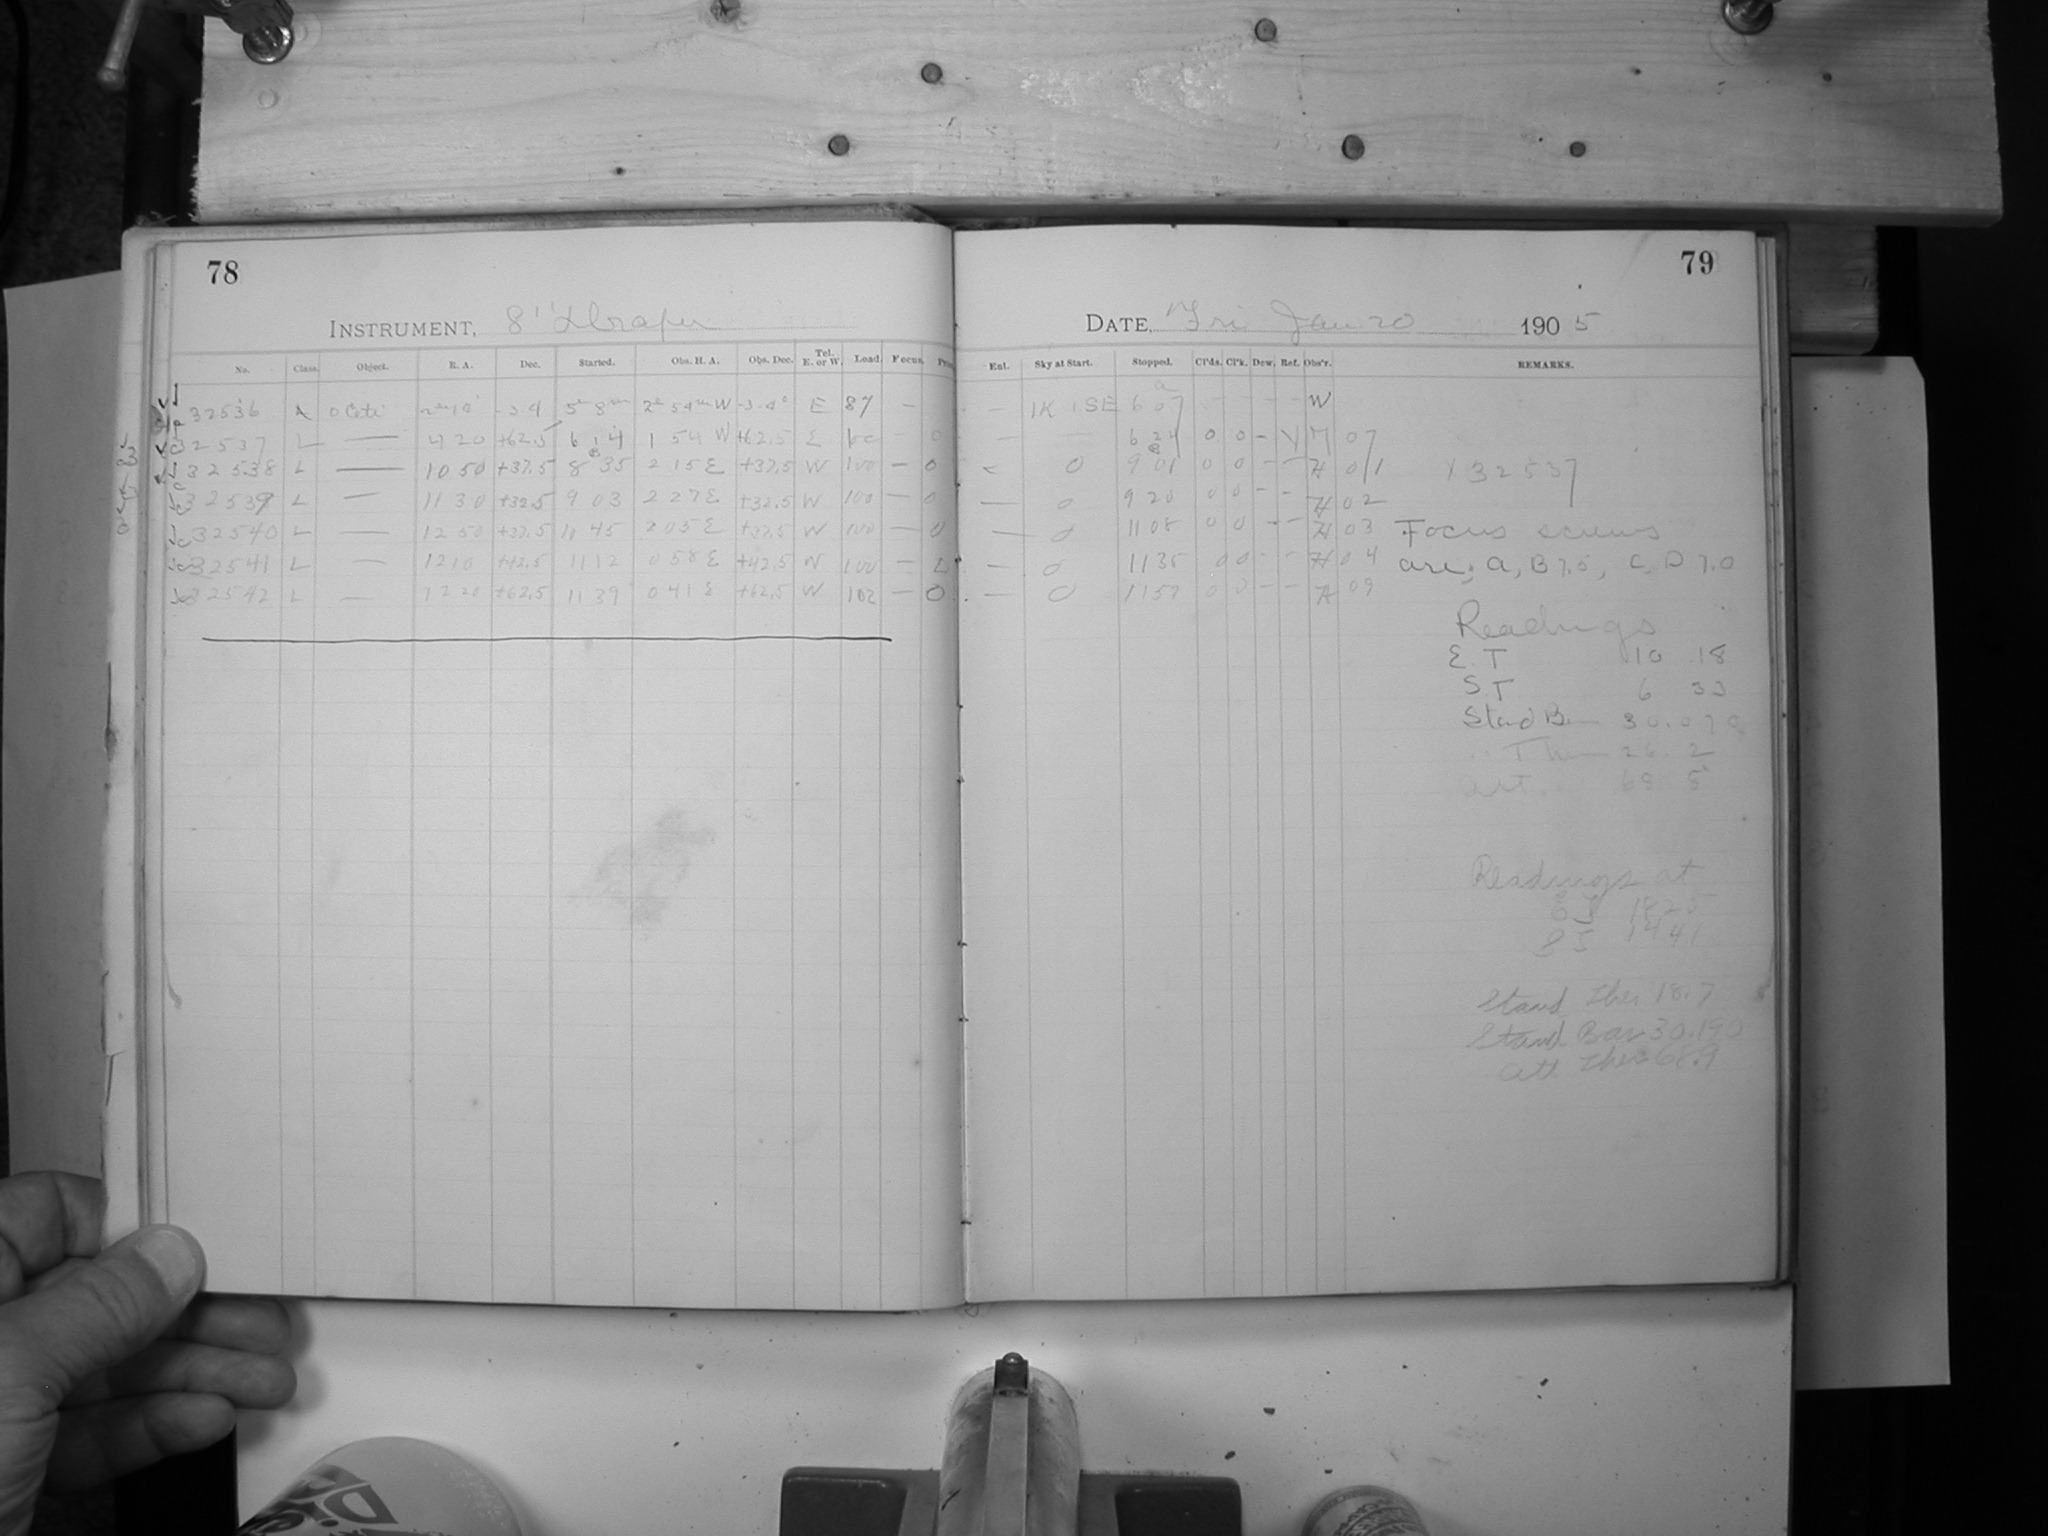 78
INSTRUMENT, 8" Draper
No. Class. Object. R. A. Dec. Started. Obs. H. A. Obs. Dec. Tel. E. or W. Load. Focus.
32536 A o Ceti -3.4 5 8 2 54 W -3.4° E 87 —
32537 L — 4 20 +62.5 6 14 1 54 W +62.5 E
32538 L — 10 50 +37.5 8 35 2 15 E +37.5 W 100 — 0
32539 L — 11 30 +32.5 9 03 2 27 E +32.5 W 100 — 0
32540 L — 12 50 +37.5 45 2 05 E +37.5 W 100 — 0
32541 L — 12 10 +42.5 11 12 0 58 E +42.5 W 100 —
32542 L — 12 20 +62.5 11 39 0 41 E +62.5 W 102 — 0
79
DATE, Fri Jan 20 1905
Enl. Sky at Start. Stopped. Cl'ds. Cl'k. Dew. Ref. Obs'r. REMARKS.
— 1K 1SE 6 07 — — — — W
— — 6 24 0 0 — 07
0 9 01 0 0 — — H 01
— 0 9 20 0 0 — — H 02
— 0 11 08 0 0 — — H 03
— 0 11 35 0 0 — — H 04
— 0 11 57 0 0 — — H 09
32537
Focus screws
are; A, B 7.5, C, D 7.0
Readings
E. T 10 18
S. T 6 33
Stand Bar 30.070
" Ther 26.2
att. 68.5
Readings at
1825
85 1441
Stand Ther 18.7
Stand Bar 30.190
att Ther 68.9